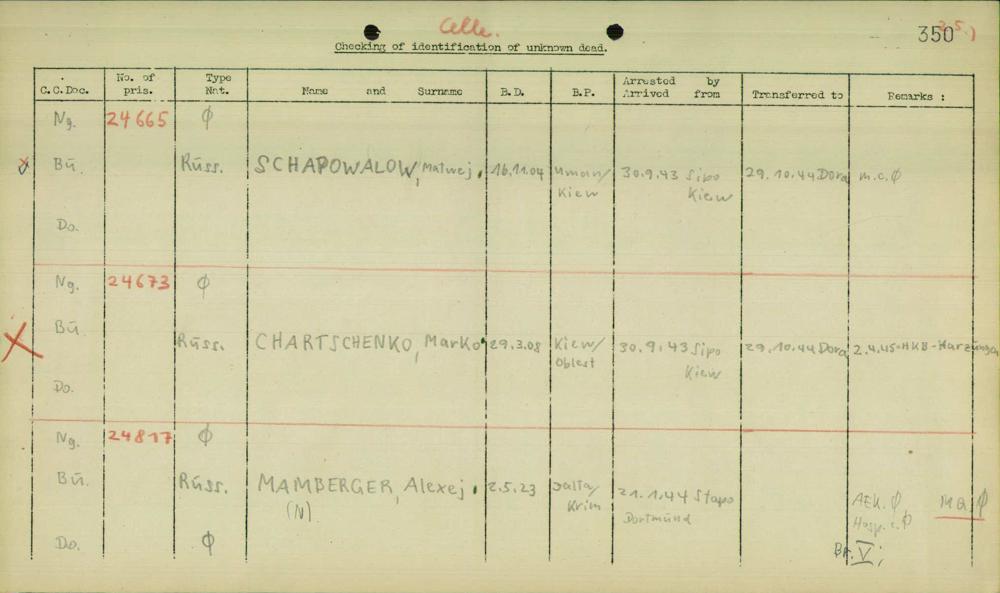 Celle.
350
Checking of identification of unknown dead.
C.C.Doc. No. of pris. Type Nat. Name and Surname B.D. B.P. Arrested by Arrived from Transferred to Remarks :
Ng. 24665 ϕ
Bü. Russ. SCHAPOWALOW, Matwej 16.11.04 Uman/ Kiew 30.9.43 Sipo Kiew 29.10.44 Dora m.c.ϕ
Do.
Ng. 24673 ϕ
Bü. Russ. CHARTSCHENKO, Marko 29.3.08 Kiew/ Oblast 30.9.43 Sipo Kiew 29.10.44 Dora 2.4.45-HKB-Harzungen
Do.
Ng. 24817 ϕ
Bü. Russ. MAMBERGER, Alexej 2.5.23 Jalta/ Krim 21.1.44 Stapo Dortmund AEK. ϕ MQ ϕ
(N) Hosp. c. ϕ
Do. ϕ Br. V;